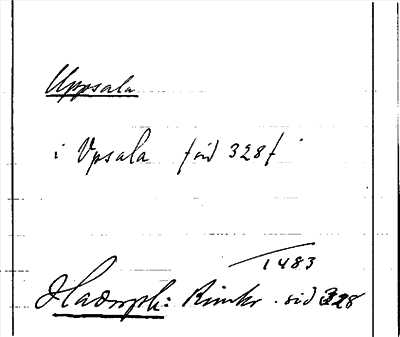 Uppsala
i Vpsala sid 328f
1483
Hadorph: Rimkr. sid 328